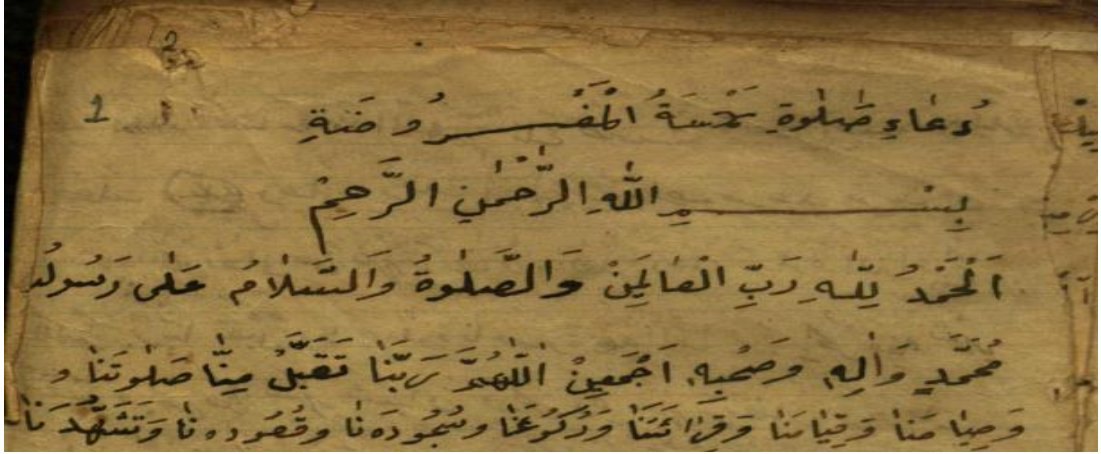 دُعَاءِ صَلٰوةِ خَمْسَةُ الْمَفْرُوضَةِ
1
بِسْمِ اللّٰهِ الرَّحْمٰنِ الرَّحِيْمِ
اَلْحَمْدُ لِلّٰهِ رَبِّ الْعَالَمِيْنَ وَالصَّلٰوةُ وَالسَّلَامُ عَلٰى رَسُولِهِ
مُحَمَّدٍ وَاٰلِهٖ وَصَحْبِهٖ اَجْمَعِيْنَ اَللّٰهُمَّ رَبَّنَا تَقَبَّلْ مِنَّا صَلٰوتَنَا وَ
وَصِيَامَنَا وَقِيَامَنَا وَقِرَائَتَنَا وَرُكُوْعَنَا وَسُجُوْدَنَا وَقُعُوْدَنَا وَتَشَهُّدَنَا